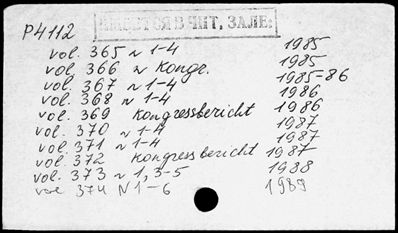 ИМЕЕТСЯ В ЧИТ, ЗАЛЕ.
P4112
vol. 365 N 1-4 1985
vol. 366 N Kongr. 1985
vol. 367 N 1-4 1985-86
vol. 368 N 1-4 1986
vol. 369 Kongressbericht 1986
vol. 370 N 1-4 1987
vol. 371 N 1-4 1987
vol. 372 Kongressbericht 1987
vol. 373 N 1, 3-5 1988
vol 374 N 1-6 1989